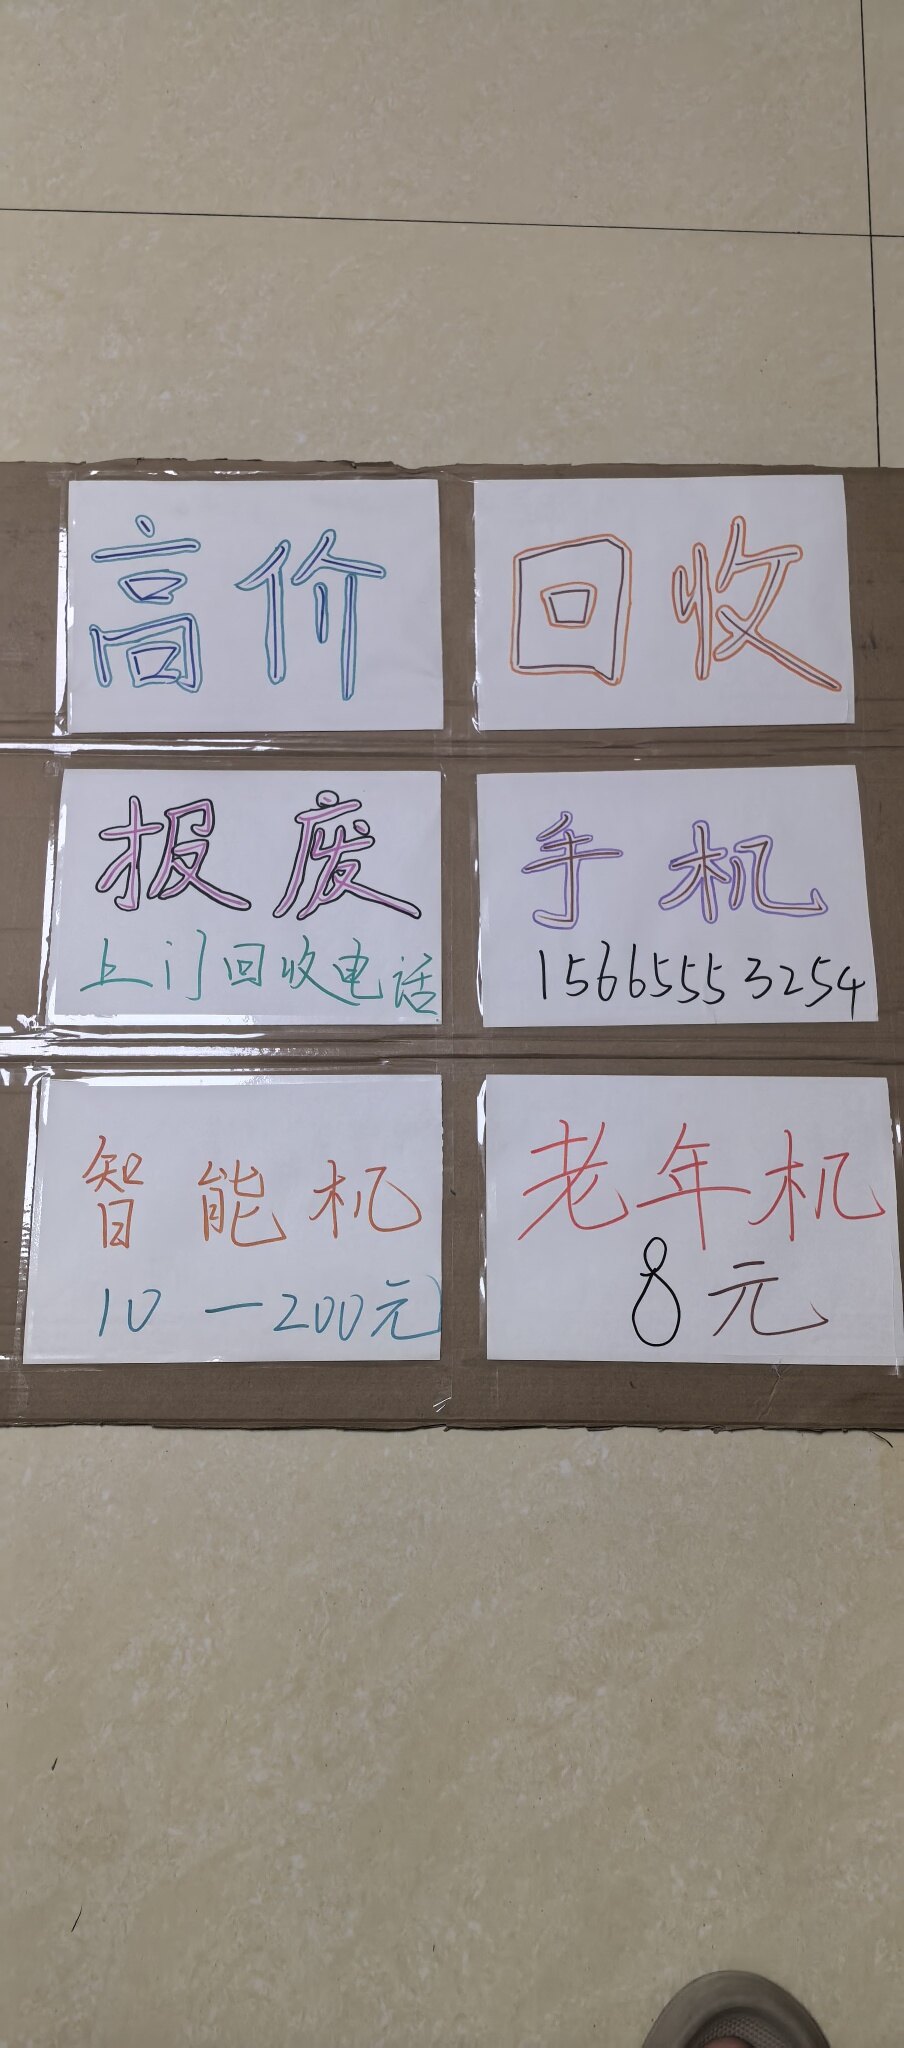 高价 回收
报废 手机
上门回收电话 15665553254
智能机 老年机
10—200元 8元